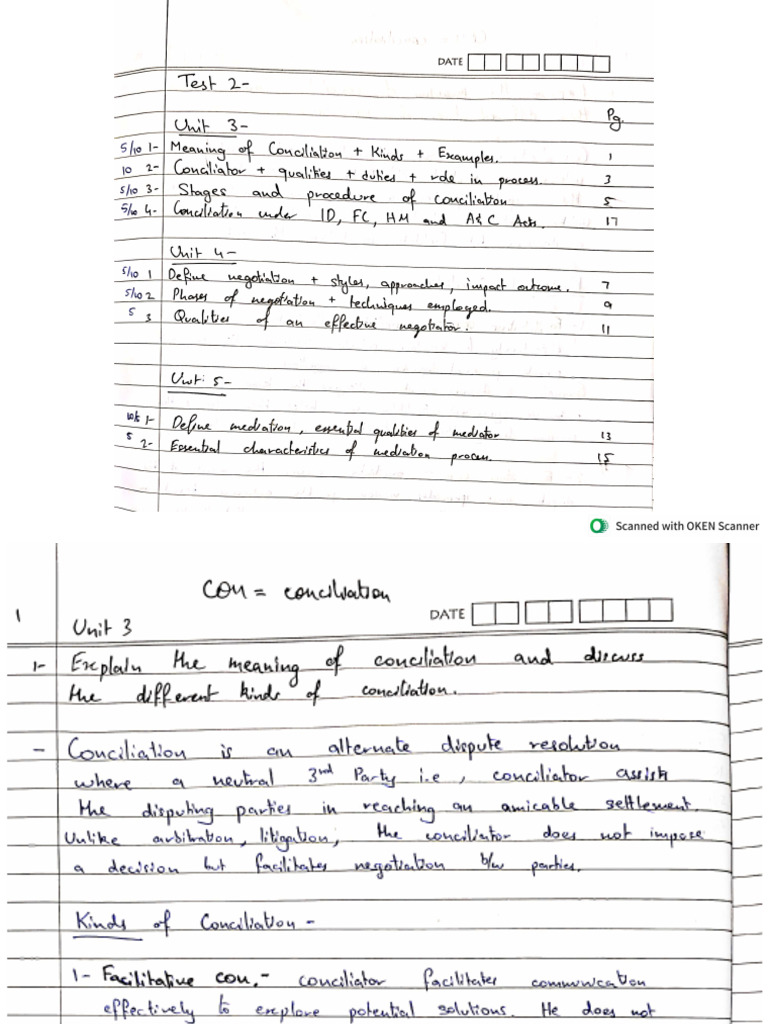 DATE
Test 2-
Pg.
Unit 3-
5/10 1- Meaning of Conciliation + Kinds + Examples. 1
10 2- Conciliator + qualities + duties + role in process. 3
5/10 3- Stages and procedure of conciliation 5
5/10 4- Conciliation under ID, FC, HM and A&C Acts. 17
Unit 4-
5/10 1 Define negotiation + styles, approaches, impact outcome. 7
5/10 2 Phases of negotiation + techniques employed. 9
5 3 Qualities of an effective negotiator. 11
Unit 5-
1- Define mediation, essential qualities of mediator 13
5 2- Essential characteristics of mediation process. 15
Scanned with OKEN Scanner
con = conciliation
1 DATE
Unit 3
1- Explain the meaning of conciliation and discuss
the different kinds of conciliation.
- Conciliation is an alternate dispute resolution
where a neutral 3rd Party i.e, conciliator assists
the disputing parties in reaching an amicable settlement.
Unlike arbitration, litigation, the conciliator does not impose
a decision but facilitates negotiation b/w parties.
Kinds of Conciliation -
1- Facilitative con.- conciliator facilitates communication
effectively to explore potential solutions. He does not